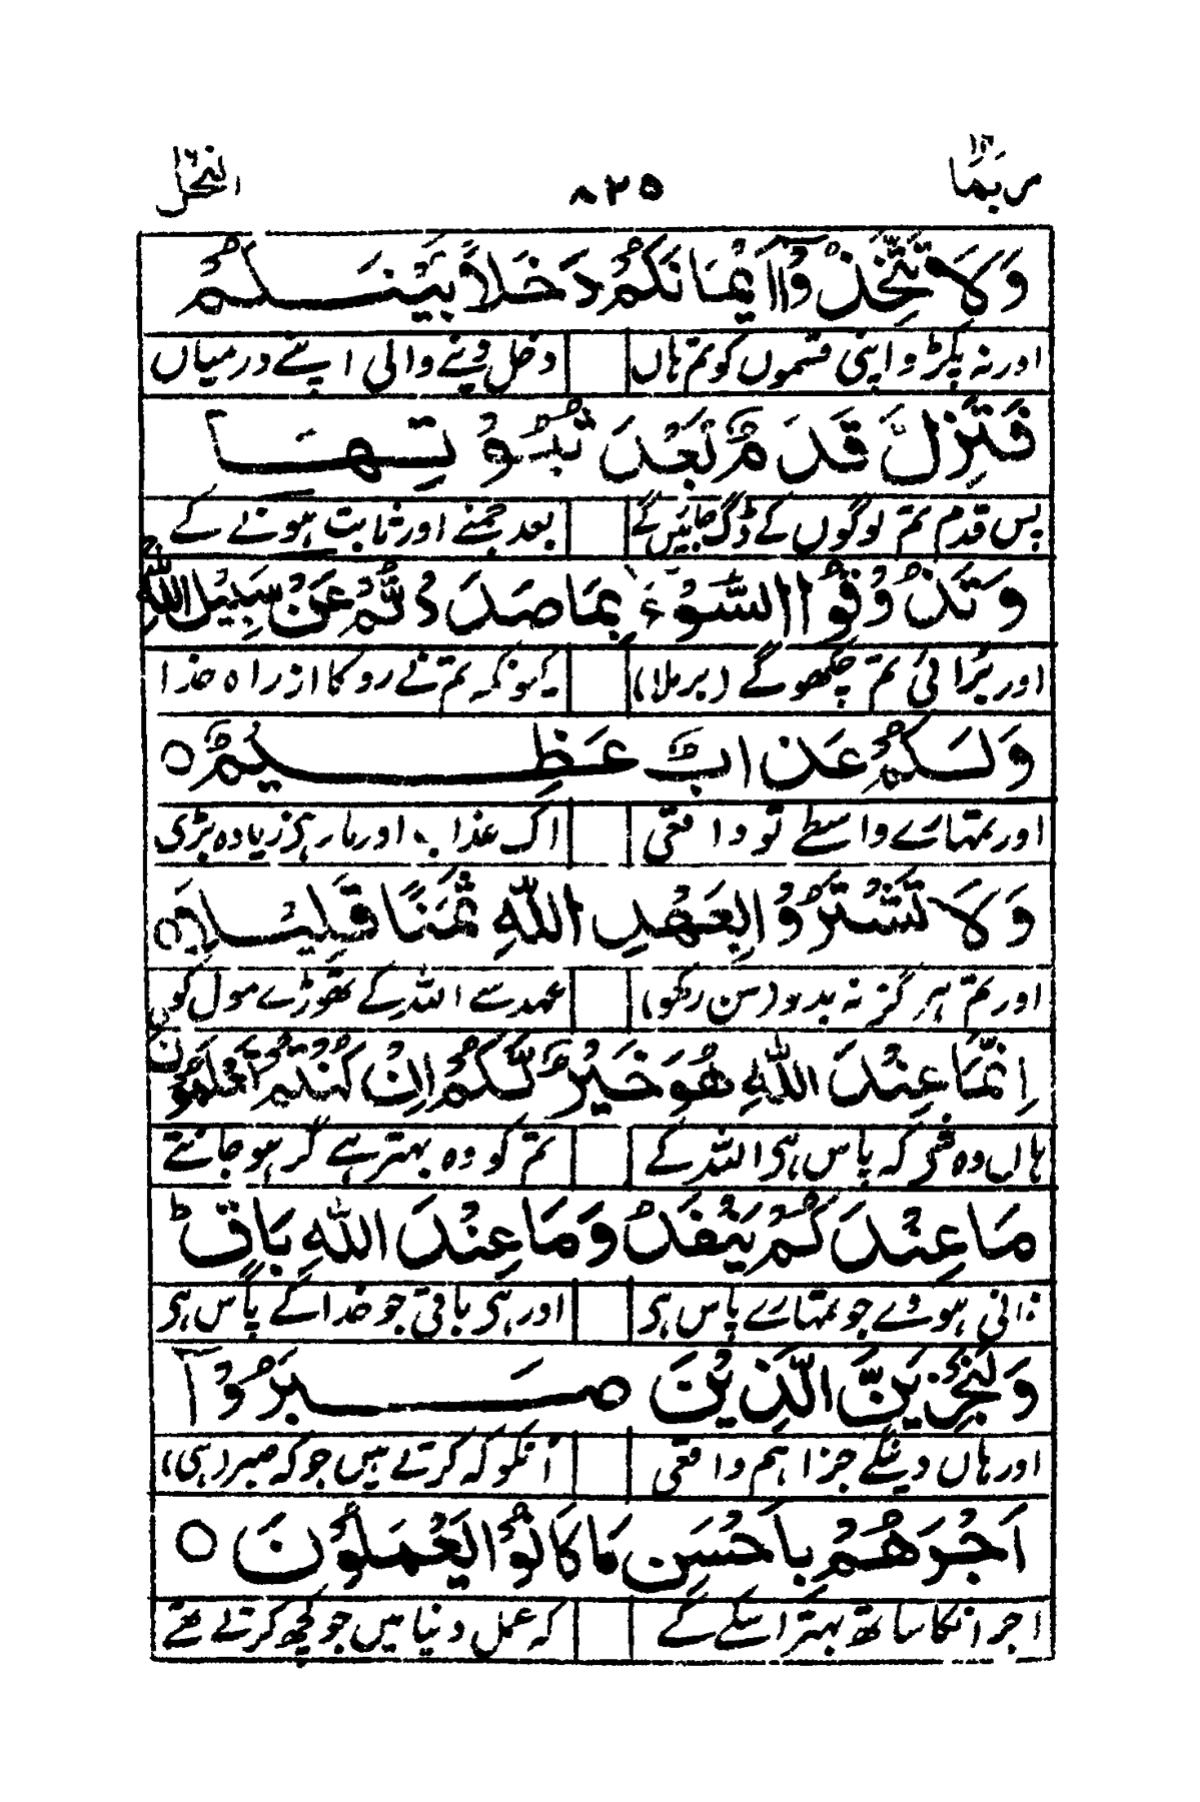 ربما ١٤
٨٢٥
النحل ١٦
وَلَا تَتَّخِذُوْٓا اَيْمَانَكُمْ دَخَلًاۢ بَيْنَكُمْ
اور نہ پکڑو اپنی قسموں کو تم ہاں دخل دینے والی اپنے درمیاں
فَتَزِلَّ قَدَمٌۢ بَعْدَ ثُبُوْتِهَا
پس قدم تم لوگوں کے ڈگ جائیں گے بعد جمنے اور ثابت ہونے کے
وَتَذُوْقُوا السُّوْٓءَ بِمَا صَدَدْتُّمْ عَنْ سَبِيْلِ اللّٰهِ
اور بُرائی تم چکھو گے (برملا) کیونکہ تم نے روکا از راہ خدا
وَلَكُمْ عَذَابٌ عَظِيْمٌ ○
اور تمہارے واسطے تو واقعی اک عذاب اور مار ہی زیادہ بڑی
وَلَا تَشْتَرُوْا بِعَهْدِ اللّٰهِ ثَمَنًا قَلِيْلًا ○
اور تم ہرگز نہ بدلو (سن رکھو) عہد سے اللہ کے تھوڑے مول کو
اِنَّمَا عِنْدَ اللّٰهِ هُوَ خَيْرٌ لَّكُمْ اِنْ كُنْتُمْ تَعْلَمُوْنَ
ہاں وہ شی کہ پاس ہی اللہ کے تم کو وہ بہتر ہے گر ہو جانتے
مَا عِنْدَكُمْ يَنْفَدُ وَمَا عِنْدَ اللّٰهِ بَاقٍ ط
فانی ہووے جو تمہارے پاس ہی اور ہی باقی جو خدا کے پاس ہی
وَلَنَجْزِيَنَّ الَّذِيْنَ صَبَرُوْٓا
اور ہاں دینگے جزا ہم واقعی اُنکو کہ کرتے ہیں جو کہ صبر (ہی)
اَجْرَهُمْ بِاَحْسَنِ مَا كَانُوْا يَعْمَلُوْنَ ○
اجر انکا ساتھ بہتر اسکے کے کہ عمل دنیا میں جو کچھ کرتے تھے